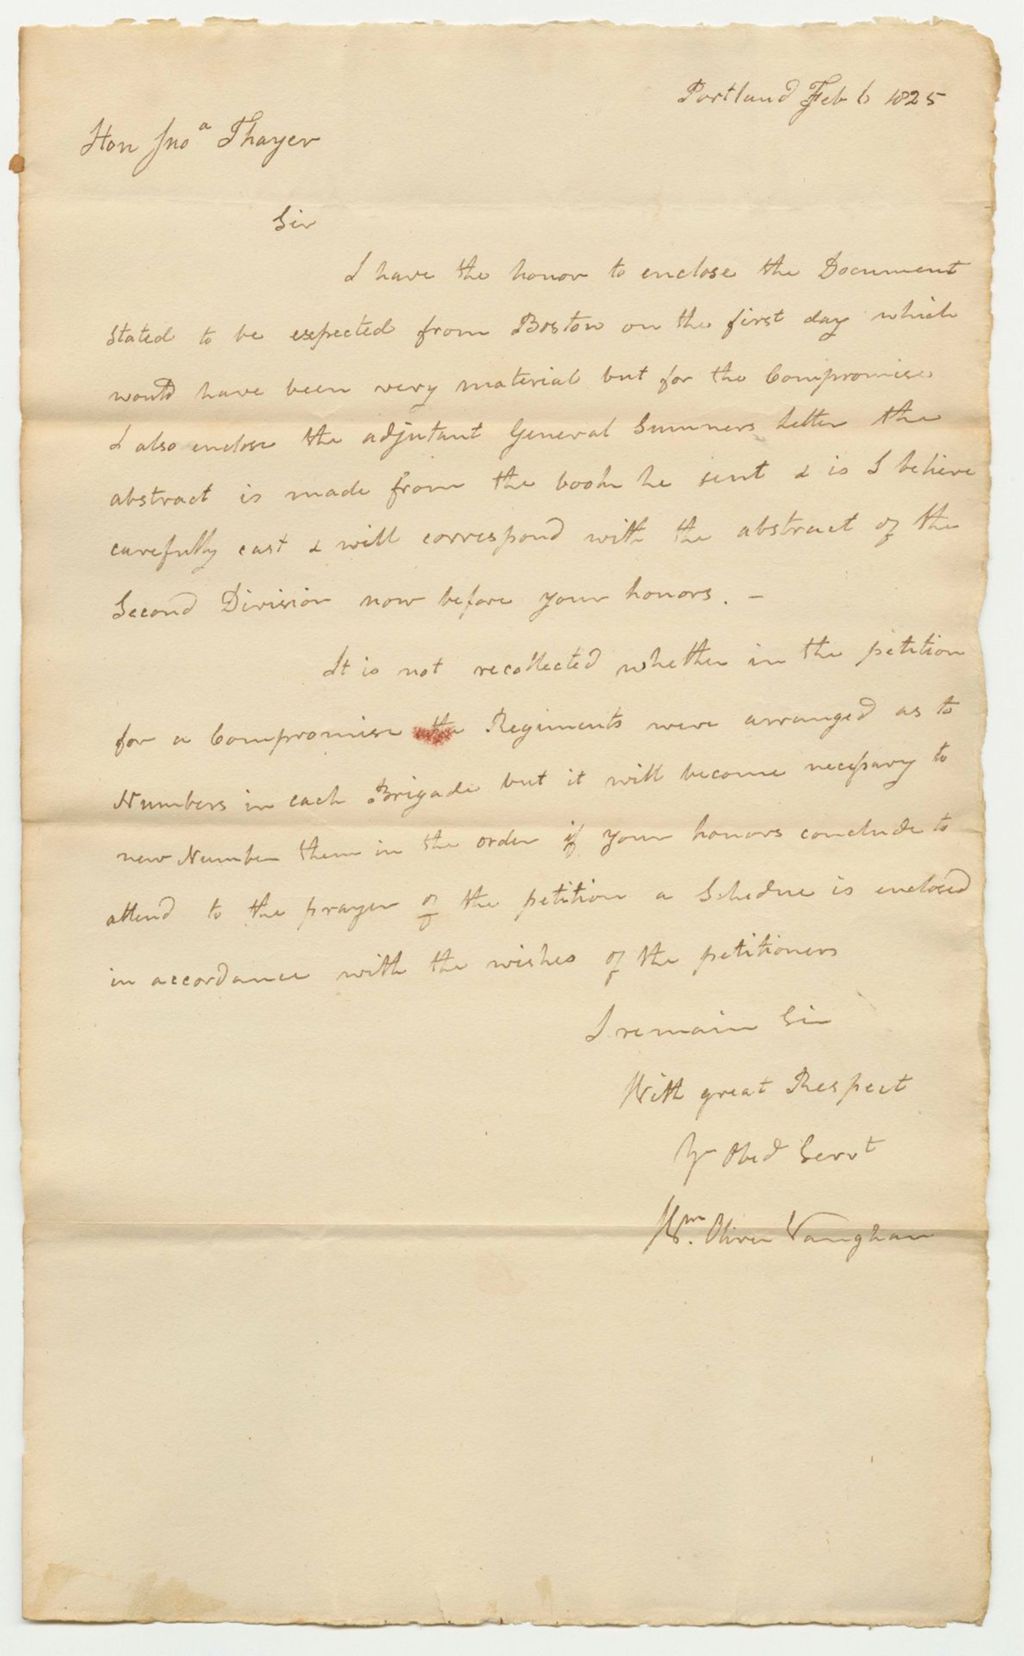 Portland Feb 6 1825
Hon Jnoa Thayer
Sir
I have the honor to enclose the Document
stated to be expected from Boston on the first day which
would have been very material but for the Compromise
I also enclose the adjutant General Sumners letter the
abstract is made from the book he sent & is I believe
carefully cast & will correspond with the abstract of the
Second Division now before your honors. –
It is not recollected whether in the petition
for a Compromise the Regiments were arranged as to
Numbers in each Brigade but it will become necessary to
new Number them in the order if your honors conclude to
attend to the prayer of the petition a Schedue is enclosed
in accordance with the wishes of the petitioners
I remain Sir
With great Respect
Yr Obed Servt
Wm. Oliver Vaughan